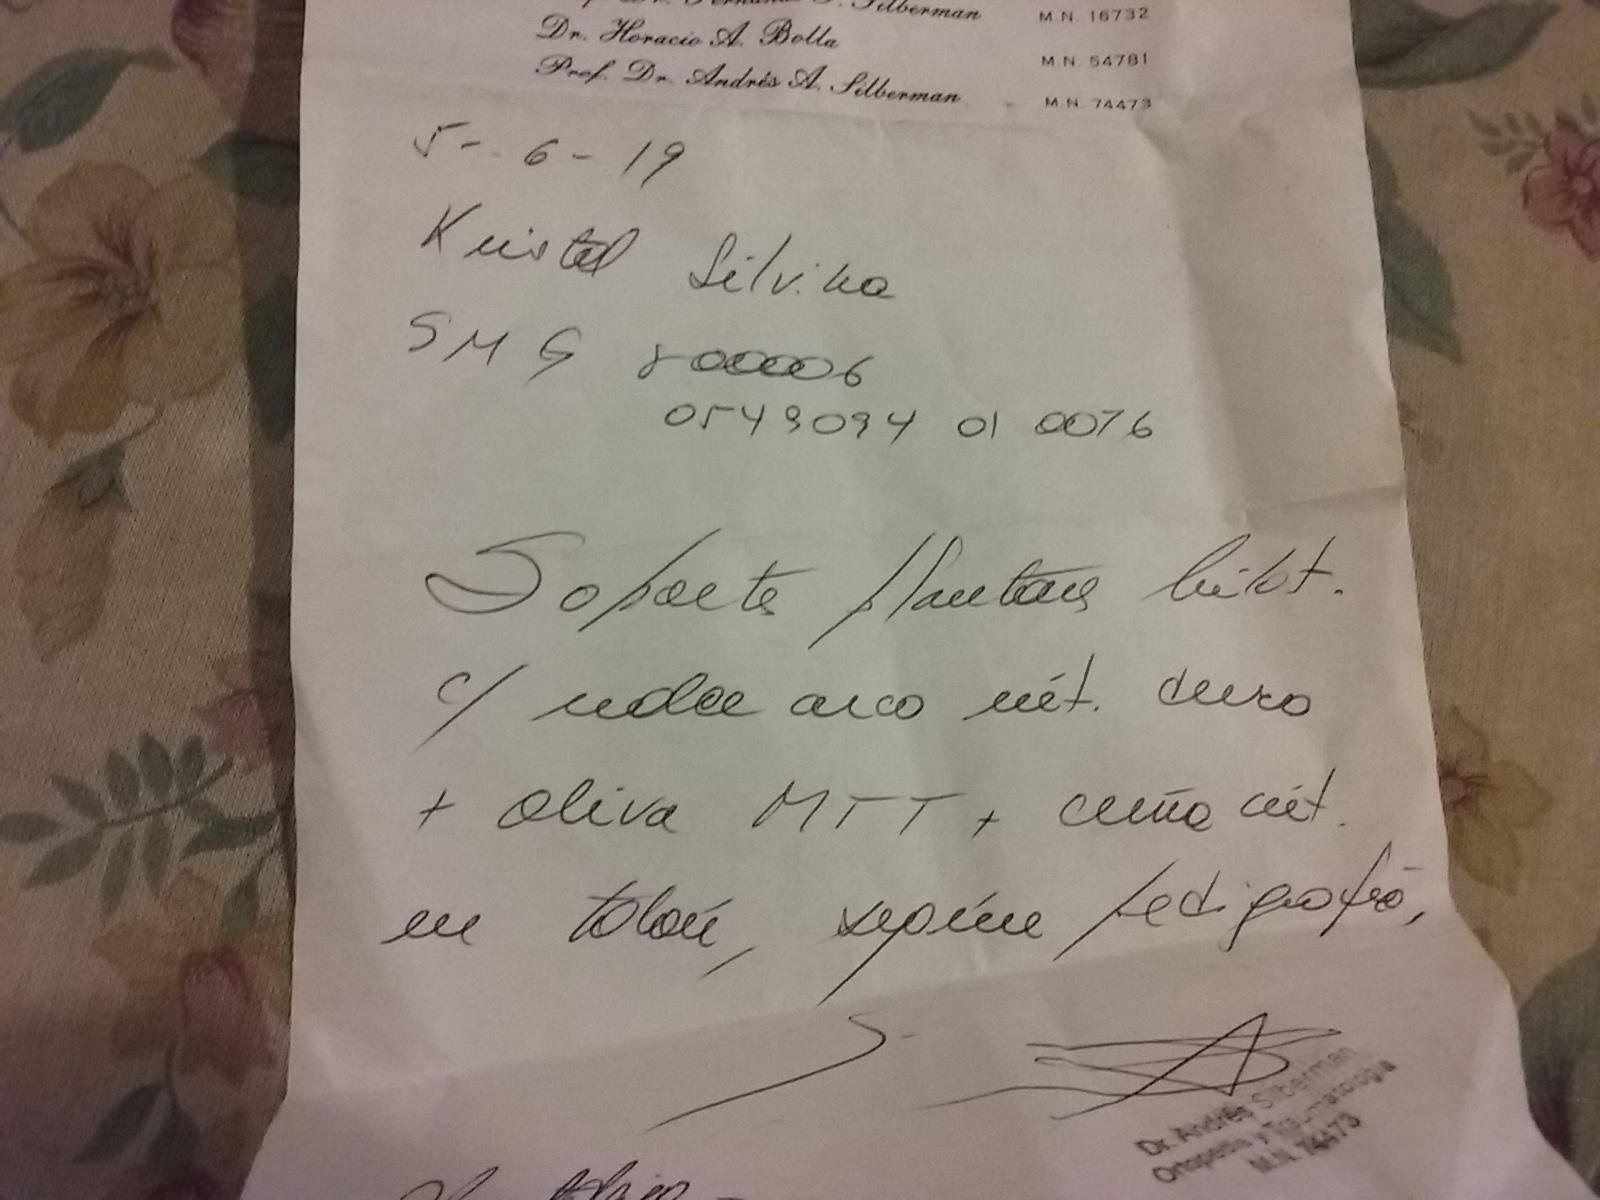 Silberman M.N. 16732
Dr. Horacio A. Bolla M.N. 54781
Prof. Dr. Andrés A. Silberman M.N. 74473
5-6-19
Silvina
SMG 800006
0549094 01 0076
Soporte plantares bilat.
c/ realce arco int. duro
+ oliva MTT + cuña int.
en talón, según pedigrafía,
Dr. Andrés Silberman
Ortopedia y Traumatología
M.N. 74473